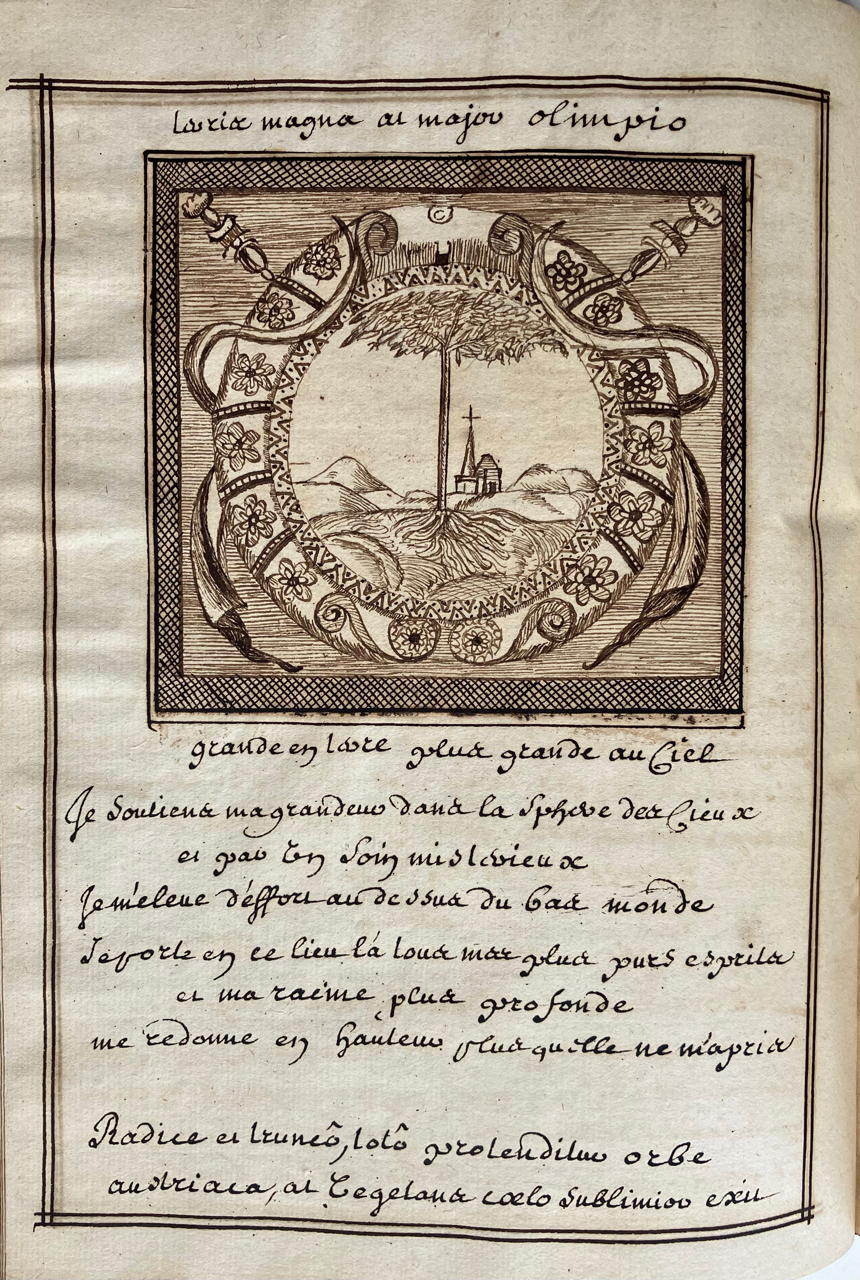 terris magna at major olimpio
grande en terre plus grande au Ciel
Je soutiens ma grandeur dans la sphere des Cieux
et par un soin misterieux
Je m'eleve d'effort au dessus du bas monde
Je porte en ce lieu là tous mes plus purs esprits
et ma racine plus profonde
me redonne en hauteur plus quelle ne m'a pris
Radice et truncô, totô protenditur orbe
austriaca, at vegetans coelo sublimior exit